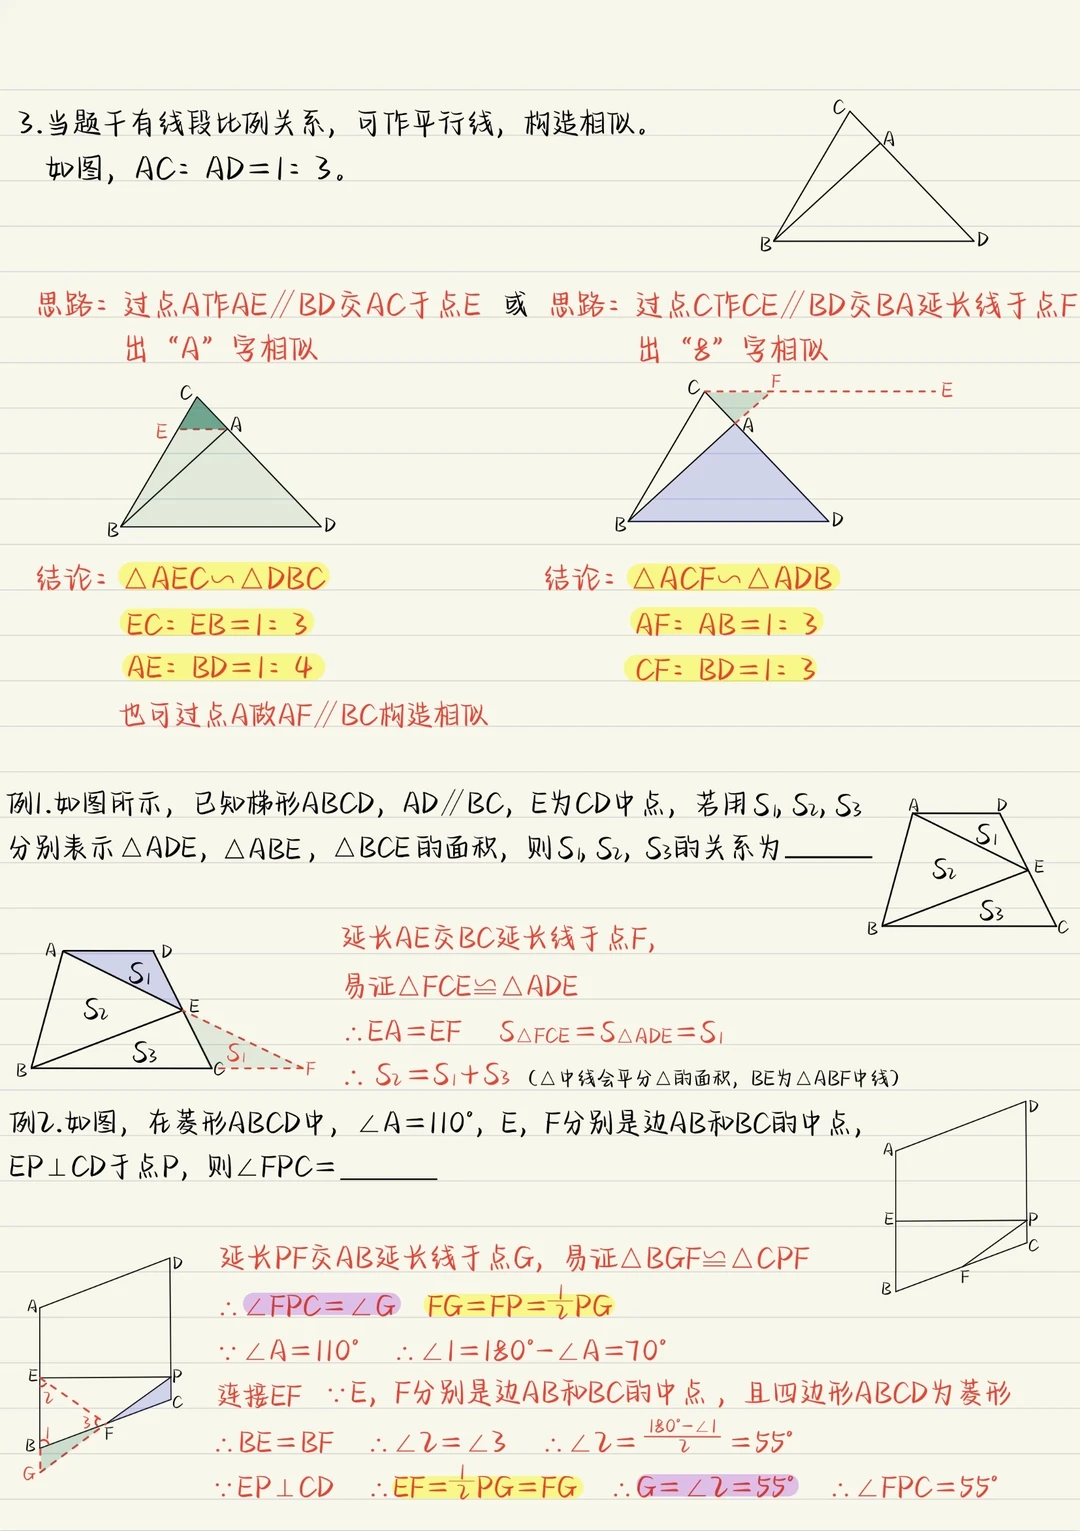 3.当题干有线段比例关系，可作平行线，构造相似。
如图，AC：AD=1：3。
C
A
B
D
思路：过点A作AE∥BD交AC于点E 或 思路：过点C作CE∥BD交BA延长线于点F
出“A”字相似 出“8”字相似
C
E
A
B
D
C
F
E
A
B
D
结论：△AEC∽△DBC 结论：△ACF∽△ADB
EC：EB=1：3 AF：AB=1：3
AE：BD=1：4 CF：BD=1：3
也可过点A做AF∥BC构造相似
例1.如图所示，已知梯形ABCD，AD∥BC，E为CD中点，若用S₁，S₂，S₃
分别表示△ADE，△ABE，△BCE的面积，则S₁，S₂，S₃的关系为______
A
D
S₁
E
S₂
S₃
B
C
延长AE交BC延长线于点F，
易证△FCE≌△ADE
∴EA=EF S△FCE=S△ADE=S₁
∴S₂=S₁+S₃（△中线会平分△的面积，BE为△ABF中线）
A
D
S₁
S₂
E
S₃
S₁
B
C
F
例2.如图，在菱形ABCD中，∠A=110°，E，F分别是边AB和BC的中点，
EP⊥CD于点P，则∠FPC=______
D
A
E
P
C
F
B
延长PF交AB延长线于点G，易证△BGF≌△CPF
∴∠FPC=∠G FG=FP=½PG
∵∠A=110° ∴∠1=180°-∠A=70°
连接EF ∵E，F分别是边AB和BC的中点，且四边形ABCD为菱形
∴BE=BF ∴∠2=∠3 ∴∠2=(180°-∠1)/2=55°
∵EP⊥CD ∴EF=½PG=FG ∴G=∠2=55° ∴∠FPC=55°
D
A
E
P
2
C
3
F
1
B
G